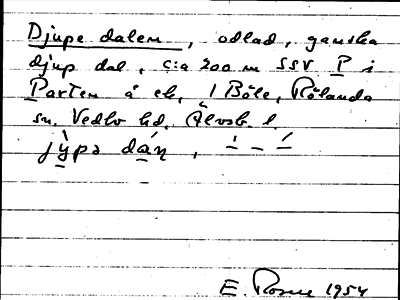 Djupe dalen, odlad, ganska
djup dal, c:a 200 m SSV P i
Parten å ek. 1 Böle, Rölanda
sn. Vedbo hd. Älvsb. l.
jỳpə dán, ' – –́
E. Rosne 1954